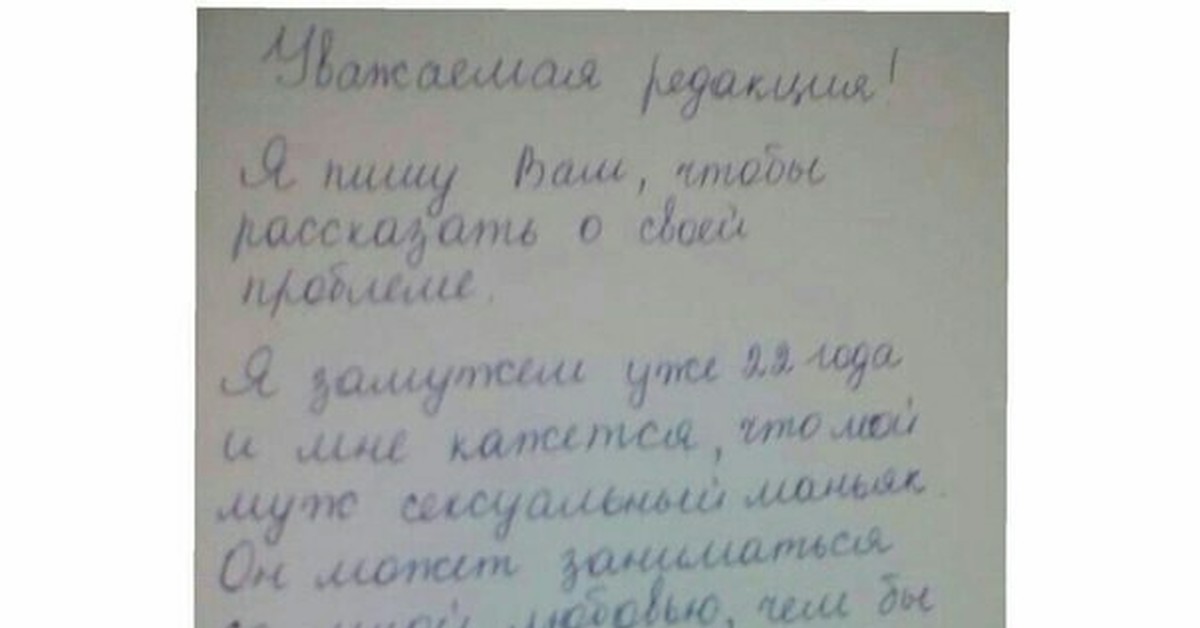 Уважаемая редакция!
Я пишу Вам, чтобы
рассказать о своей
проблеме.
Я замужем уже 22 года
и мне кажется, что мой
муж сексуальный маньяк.
Он может заниматься
со мной любовью, чем бы